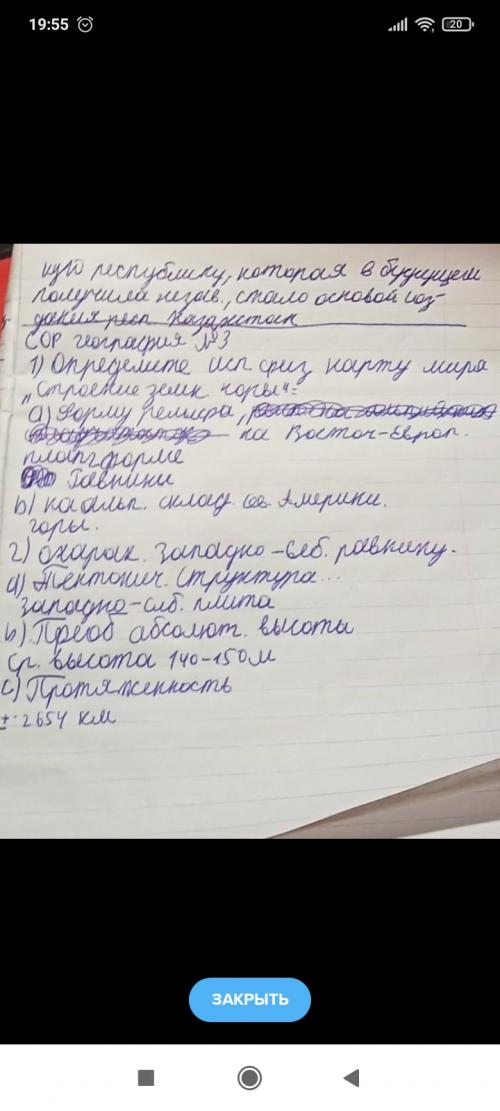 19:55
20
кую республику, которая в будущем
получила незав., стало основой соз-
дания респ. Казахстан
СОР география №3
1) Определите исп. физ карту мира
"Строение земн. коры":
а) Форму рельефа,
на Восточ-Европ.
платформе
Равнины
b) на альп. склад. сев. Америки.
горы.
2) охарак. Западно-сиб. равнину.
а) Тектонич. структура...
Западно-сиб. плита
b) Преоб абсолют. высоты
Ср. высота 140-150м
с) Протяженность
± 2654 км
ЗАКРЫТЬ